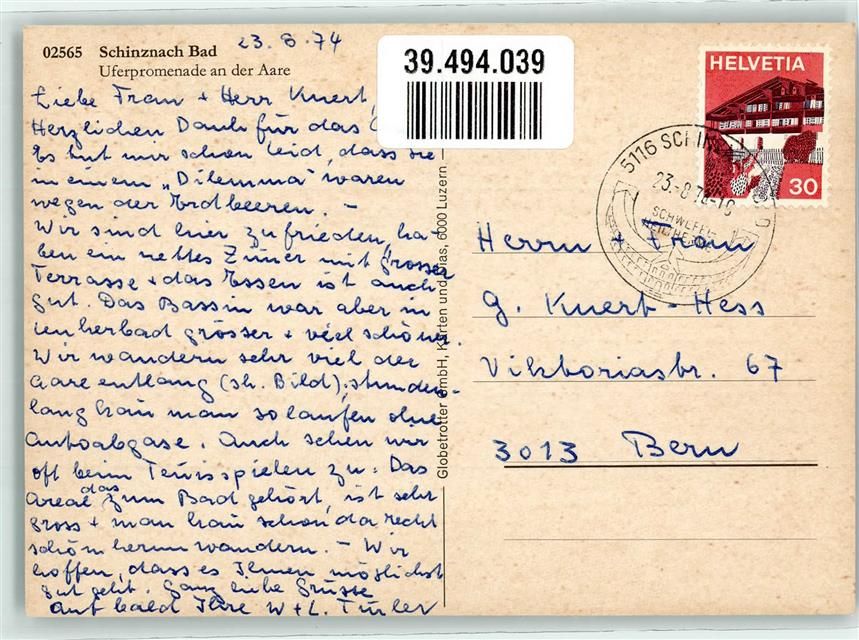 02565 Schinznach Bad 23.8.74
Uferpromenade an der Aare
39.494.039
Liebe Frau + Herr Kuert,
Herzlichen Dank für das
Es tut mir schon leid, dass sie
in einem „Dilemma" waren
wegen der Erdbeeren. –
Wir sind hier zufrieden, ha-
ben ein nettes Zimer mit grosser
Terrasse + das Essen ist auch
gut. Das Bassin war aber in
Leukerbad grösser + viel schöner.
Wir wandern sehr viel der
Aare entlang (sh. Bild), stunden-
lang kan man so laufen ohne
Autoabgase. Auch sehen wir
oft beim Tenisspielen zu. Das
Areal das zum Bad gehört, ist sehr
gross + man kan schon da recht
schön herum wandern. – Wir
hoffen, dass es Ihnen möglichst
gut geht. Ganz liebe Grüsse
auf bald Ihre W + L. Türler
Globetrotter GmbH, Karten und Dias, 6000 Luzern
HELVETIA
30
5116 SCHINZ
23.-8.74-18
SCHWEFEL
Herrn + Frau
G. Kuert-Hess
Viktoriastr. 67
3013 Bern